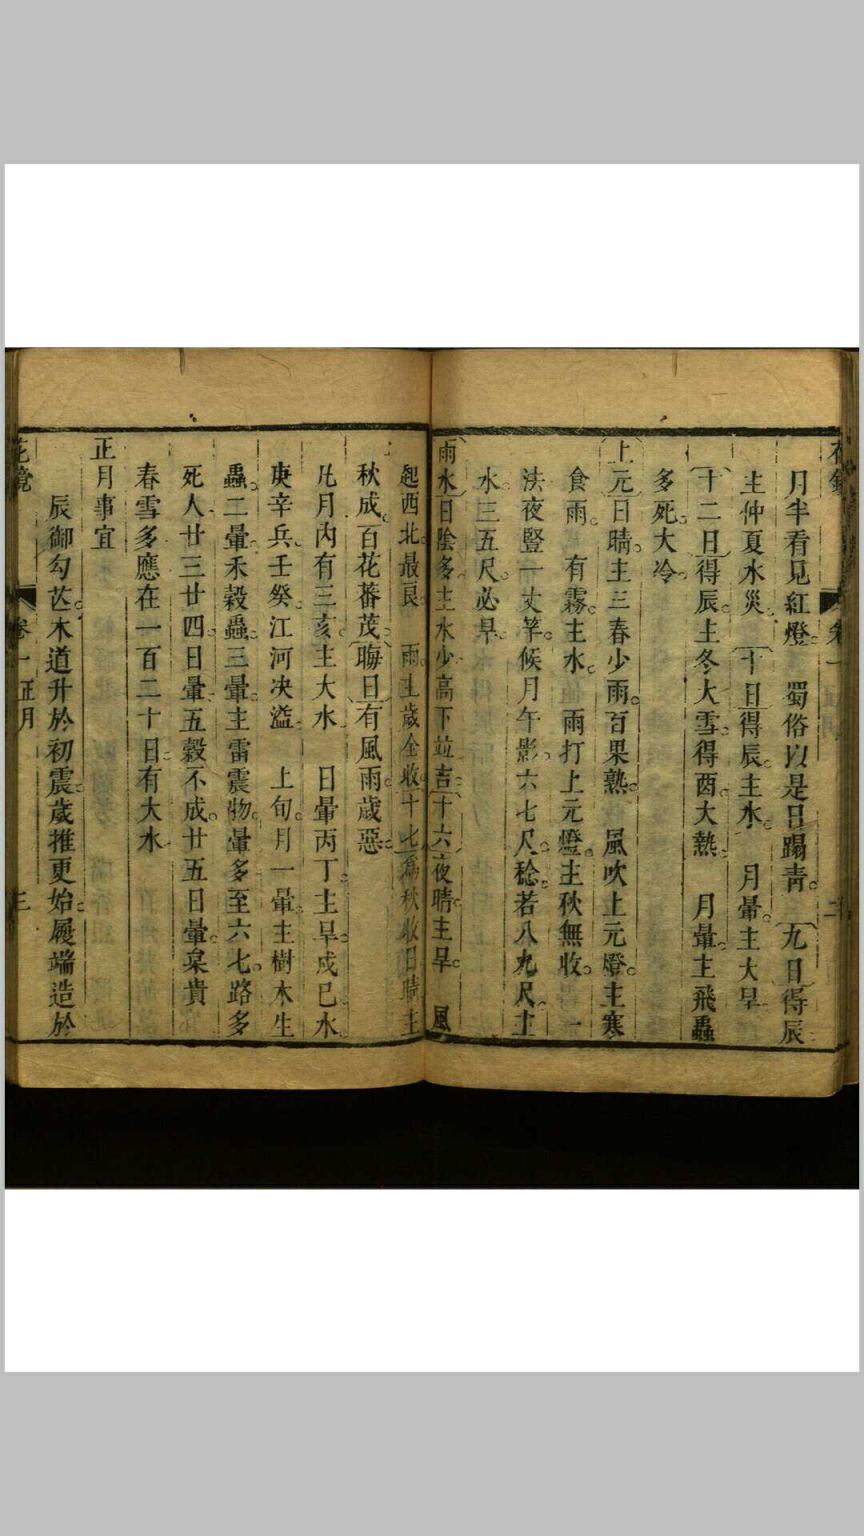 月半看見紅燈。　蜀俗以是日踢靑。　九日得辰
主仲夏水災。　十日得辰。主水。　月暈。主大旱
十二日得辰。主冬大雪。得酉大熱。　月暈。主飛蟲
多死大冷。
上元日晴。主三春少雨。百果熟。　風吹上元燈。主寒
食雨。　有霧。主水。　雨打上元燈。主秋無收。　一
法夜豎一丈竿。候月午影六七尺。稔。若八九尺。主
水三五尺。必旱。
雨水日陰多。主水少。高下竝吉。十六夜晴。主旱。　風
起西北。最良　雨。主歲全收。十七爲秋收日晴。主
秋成。百花蕃茂。晦日有風雨。歲惡。
凡月內有三亥。主大水　日暈丙丁。主旱。戊己水。
庚辛兵。壬癸。江河決溢　上旬月一暈。主樹木生
蟲。二暈。禾穀蟲。三暈。主雷震物。暈多至六七。路多
死人。廿三廿四日暈。五穀不成。廿五日暈。枲貴
春雪多。應在一百二十日有大水
正月事宜
辰御勾芒。木道升於初震。歲推更始。履端造於
花鏡　卷一　正月　三